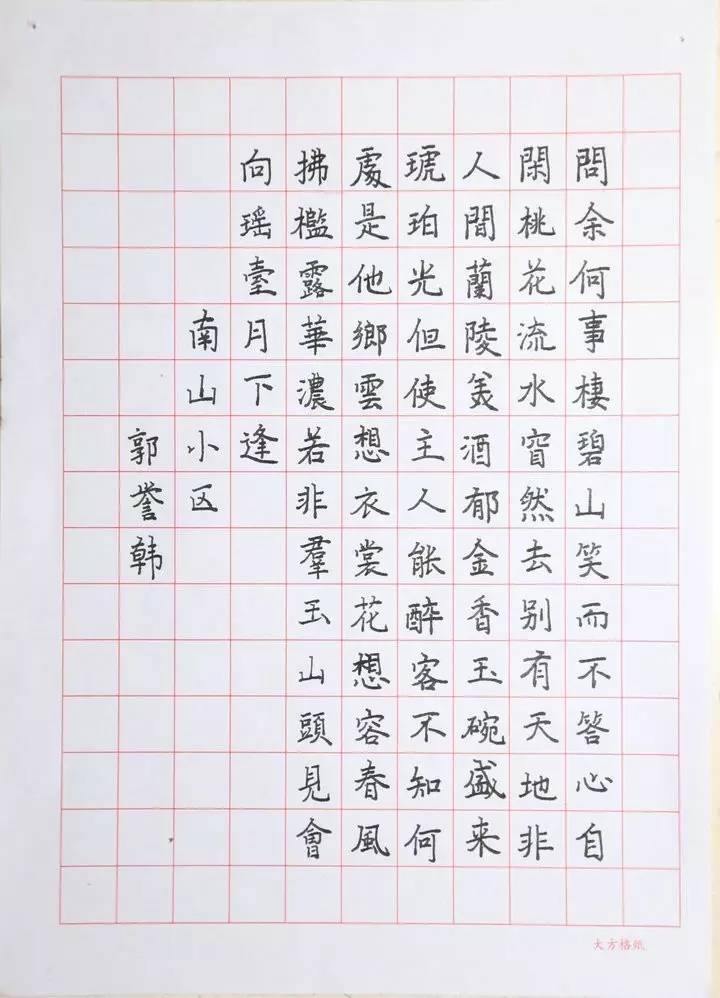 問余何事棲碧山笑而不答心自
閑桃花流水窅然去别有天地非
人間蘭陵美酒郁金香玉碗盛来
琥珀光但使主人能醉客不知何
處是他鄉雲想衣裳花想容春風
拂檻露華濃若非羣玉山頭見會
向瑶臺月下逢
南山小区
郭誉韩
大方格纸